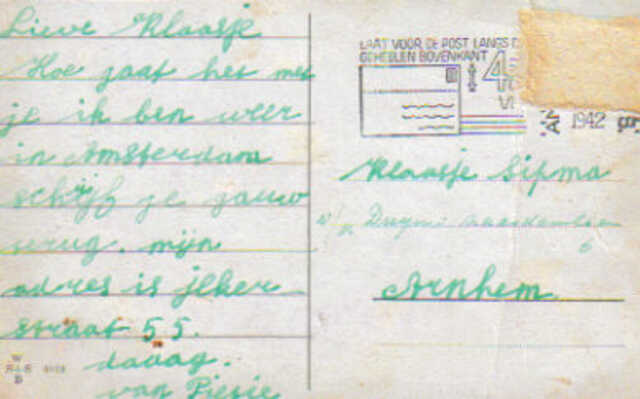 Lieve Klaasje
Hoe gaat het met
je ik ben weer
in Amsterdam
schrijf je gauw
terug. mijn
adres is jlker
straat 55.
daaag.
van Piesie
LAAT VOOR DE POST LANGS D
GEHEELEN BOVENKANT
1942
Klaasje Sipma
6
Arnhem